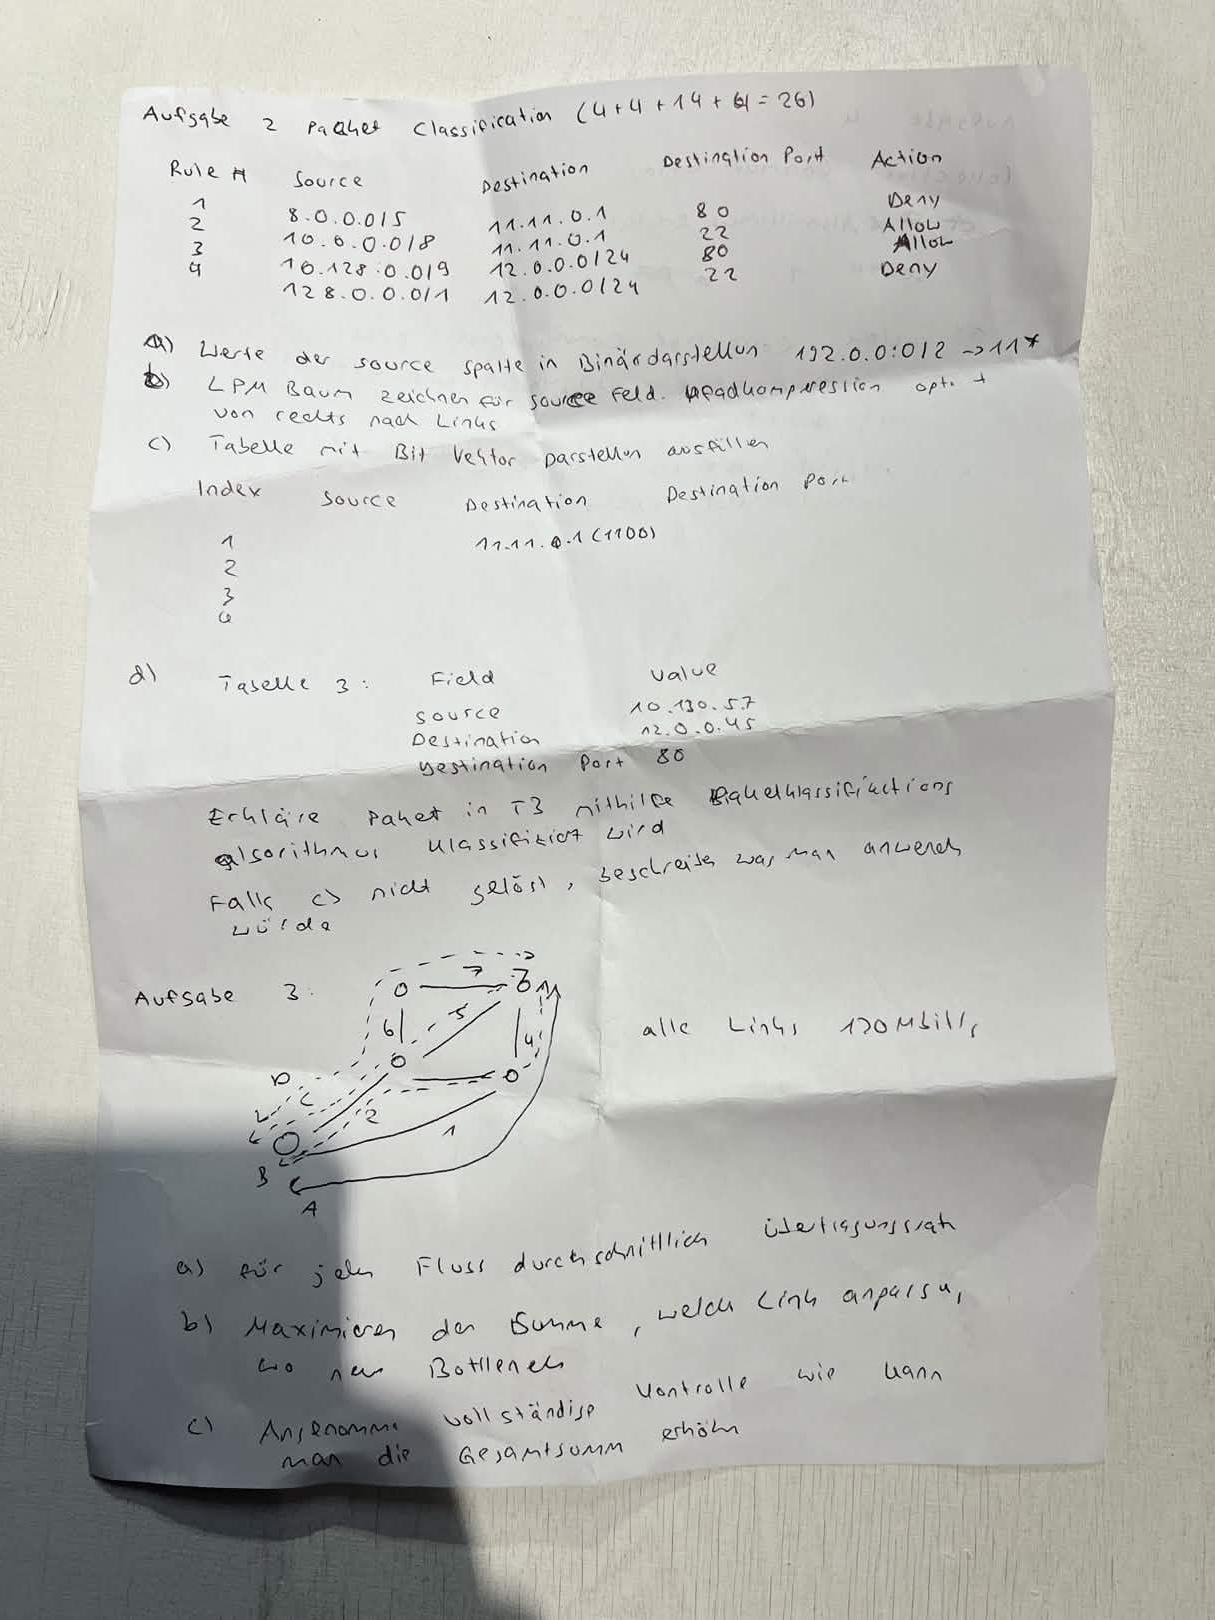 Aufgabe 2 Packet Classification (4+4+14+4=26)
Rule # Source Destination Destination Port Action
1 8.0.0.0/5 11.11.0.1 80 Deny
2 10.0.0.0/8 11.11.0.1 22 Allow
3 10.128.0.0/9 12.0.0.0/24 80 Allow
4 128.0.0.0/1 12.0.0.0/24 22 Deny
a) Werte der source spalte in Binärdarstellun 192.0.0.0/2 → 11*
b) LPM Baum zeichnen für source Feld. Pfadkompression opt. +
von rechts nach Links
c) Tabelle mit Bit Vektor Darstellun ausfüllen
Index Source Destination Destination Port
1 11.11.0.1 (1100)
2
3
4
d) Tabelle 3: Field Value
source 10.130.5.7
Destination 12.0.0.45
Destination Port 80
Erkläre Paket in T3 mithilfe Paketklassifikations
algorithmus klassifiziert wird
Falls c) nicht gelöst, beschreiben was man anwenden
würde
Aufgabe 3:
7
6 5
4
alle Links 120Mbit/s
D
C
2
1
B
A
a) für jeden Fluss durchschnittlich übertragungsrate
b) Maximieren der Summe, welch Link anpassn,
wo neu Bottleneck
c) Angenomme vollständige Kontrolle wie kann
man die Gesamtsumm erhöhn